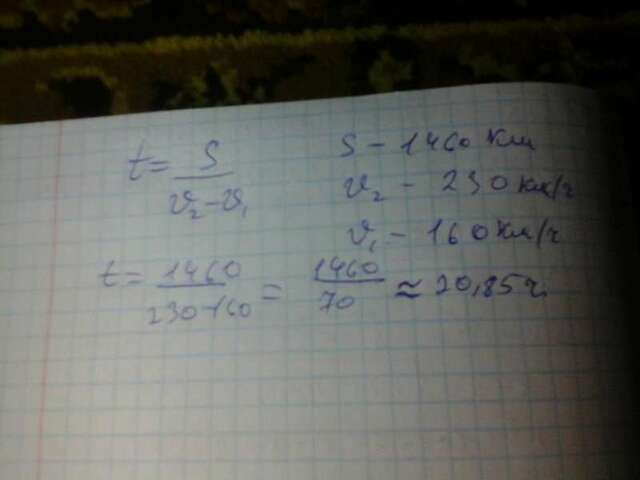 t = S / (v₂ - v₁)
S - 1460 км
v₂ - 230 км/ч
v₁ - 160 км/ч
t = 1460 / (230-160) = 1460 / 70 ≈ 20,85 ч.